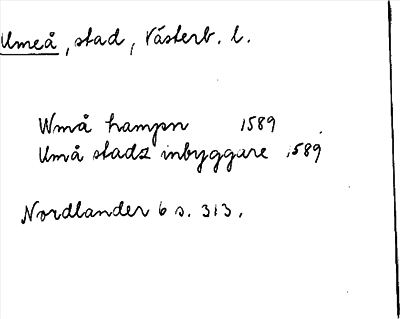 Umeå, stad, Västerb. l.
Wmå hampn 1589
Umå stadz inbyggare 1589
Nordlander 6 s. 313.